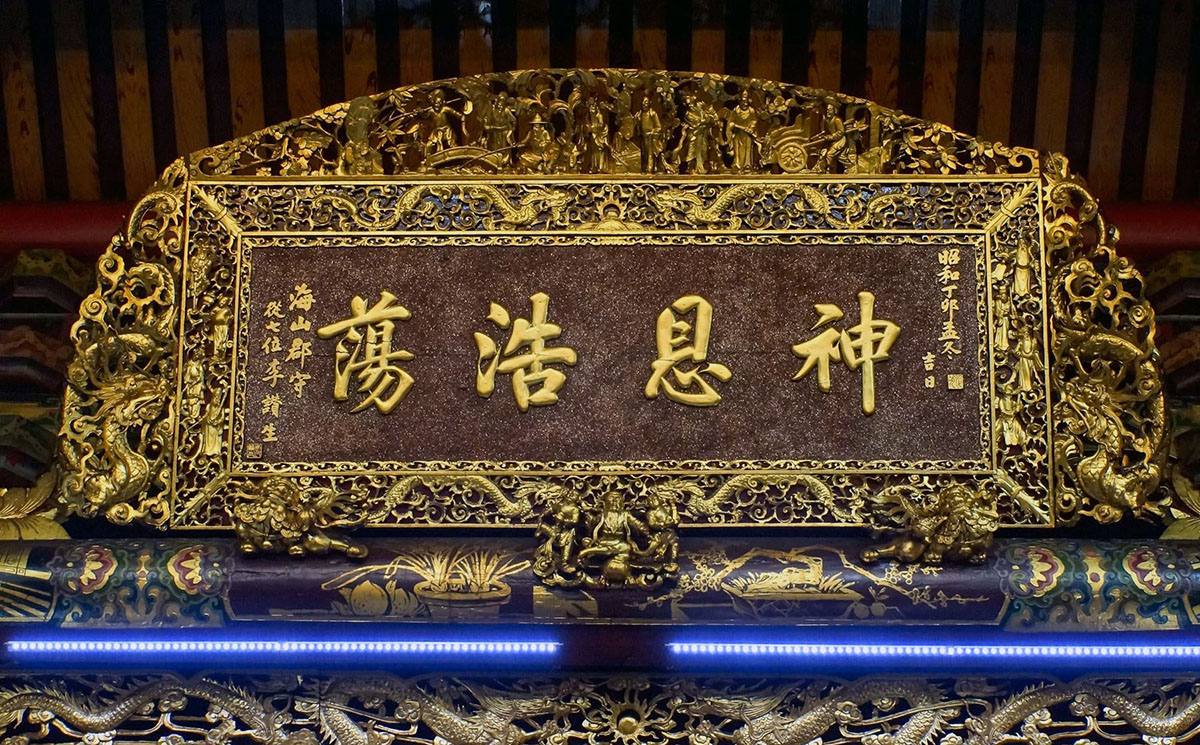 昭和丁卯孟冬
吉日
神恩浩蕩
海山郡守
從七位李讚生